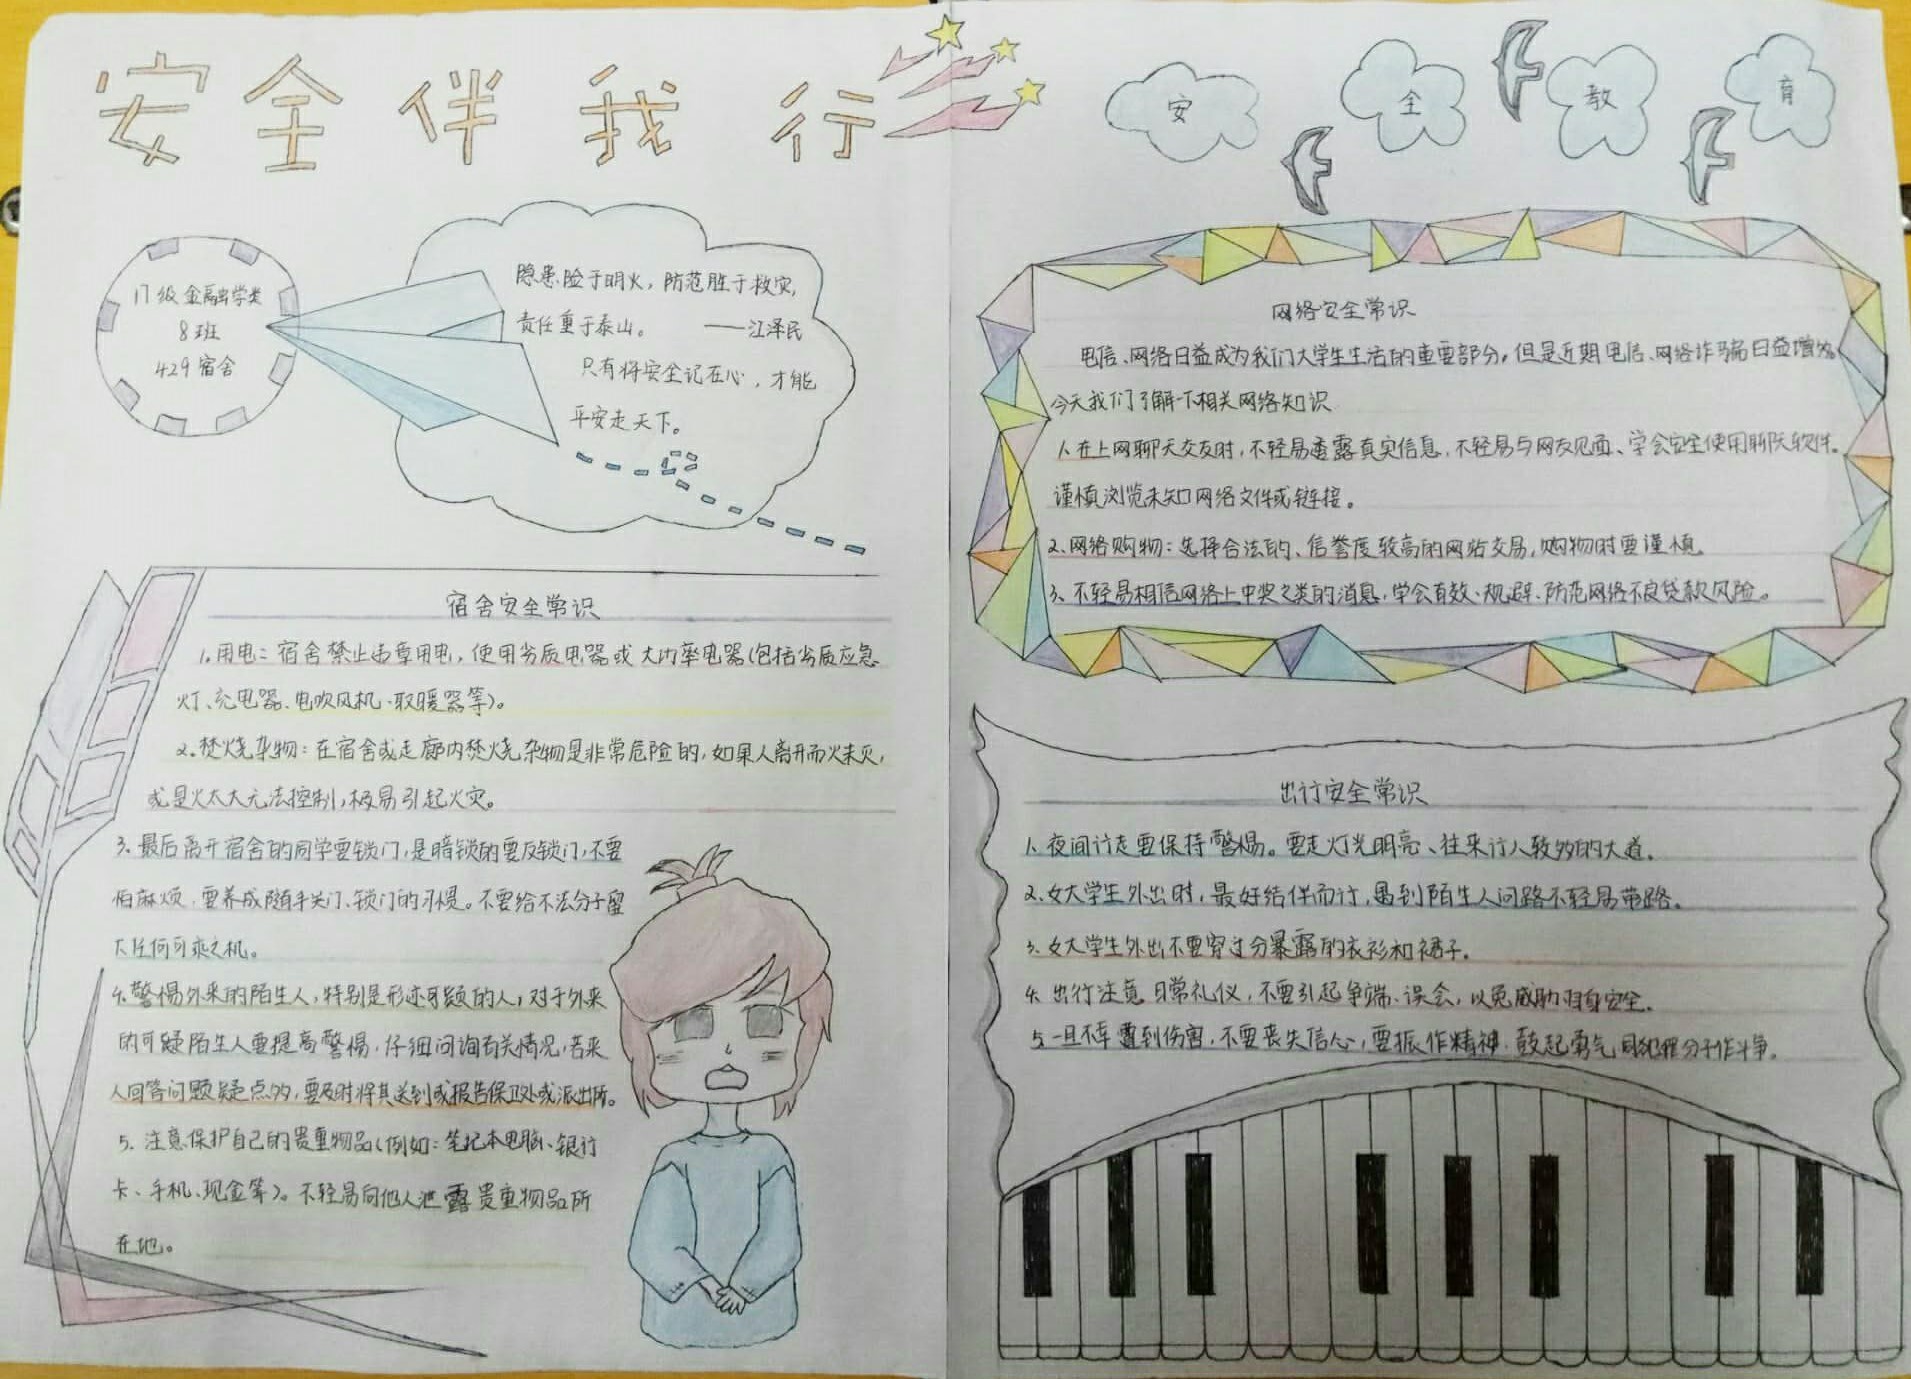 安全伴我行
17级金融学类
8班
429宿舍
隐患险于明火，防范胜于救灾，
责任重于泰山。 ——江泽民
只有将安全记在心，才能
平安走天下。
宿舍安全常识
1.用电：宿舍禁止违章用电，使用劣质电器或大功率电器(包括劣质应急
灯、充电器、电吹风机、取暖器等)。
2.焚烧杂物：在宿舍或走廊内焚烧杂物是非常危险的，如果人离开而火未灭，
或是火太大无法控制，极易引起火灾。
3.最后离开宿舍的同学要锁门，是暗锁的要反锁门，不要
怕麻烦，要养成随手关门、锁门的习惯。不要给不法分子留
下任何可乘之机。
4.警惕外来的陌生人，特别是形迹可疑的人，对于外来
的可疑陌生人要提高警惕，仔细问询有关情况，若来
人回答问题疑点多，要及时将其送到或报告保卫处或派出所。
5.注意保护自己的贵重物品(例如：笔记本电脑、银行
卡、手机、现金等)。不轻易向他人泄露贵重物品所
在地。
安全教育
网络安全常识
电信、网络日益成为我们大学生生活的重要部分，但是近期电信、网络诈骗日益增多。
今天我们了解一下相关网络知识
1.在上网聊天交友时，不轻易透露真实信息，不轻易与网友见面、学会安全使用聊天软件。
谨慎浏览未知网络文件或链接。
2.网络购物：选择合法的、信誉度较高的网站交易，购物时要谨慎。
3、不轻易相信网络上中奖之类的消息，学会有效、规避、防范网络不良贷款风险。
出行安全常识
1.夜间行走要保持警惕。要走灯光明亮、往来行人较多的大道。
2.女大学生外出时，最好结伴而行，遇到陌生人问路不轻易带路。
3.女大学生外出不要穿过分暴露的衣衫和裙子。
4.出行注意日常礼仪，不要引起争端、误会，以免威胁自身安全。
5.一旦不幸遭到伤害，不要丧失信心，要振作精神，鼓起勇气同犯罪分子作斗争。